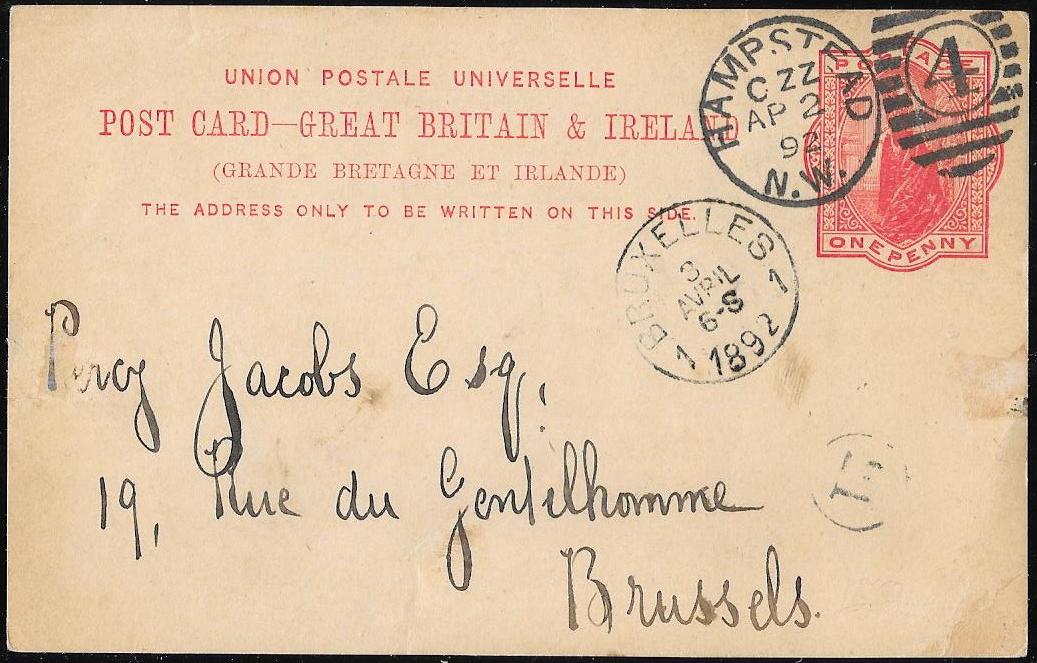 UNION POSTALE UNIVERSELLE
POST CARD—GREAT BRITAIN & IRELAND
(GRANDE BRETAGNE ET IRLANDE)
THE ADDRESS ONLY TO BE WRITTEN ON THIS SIDE.
HAMPSTEAD
C ZZ
AP 2
92
N.W.
4
POSTAGE
ONE PENNY
BRUXELLES
3
AVRIL
6-S
1 1892 1
Percy Jacobs Esq.,
19, Rue du Gentilhomme
Brussels.